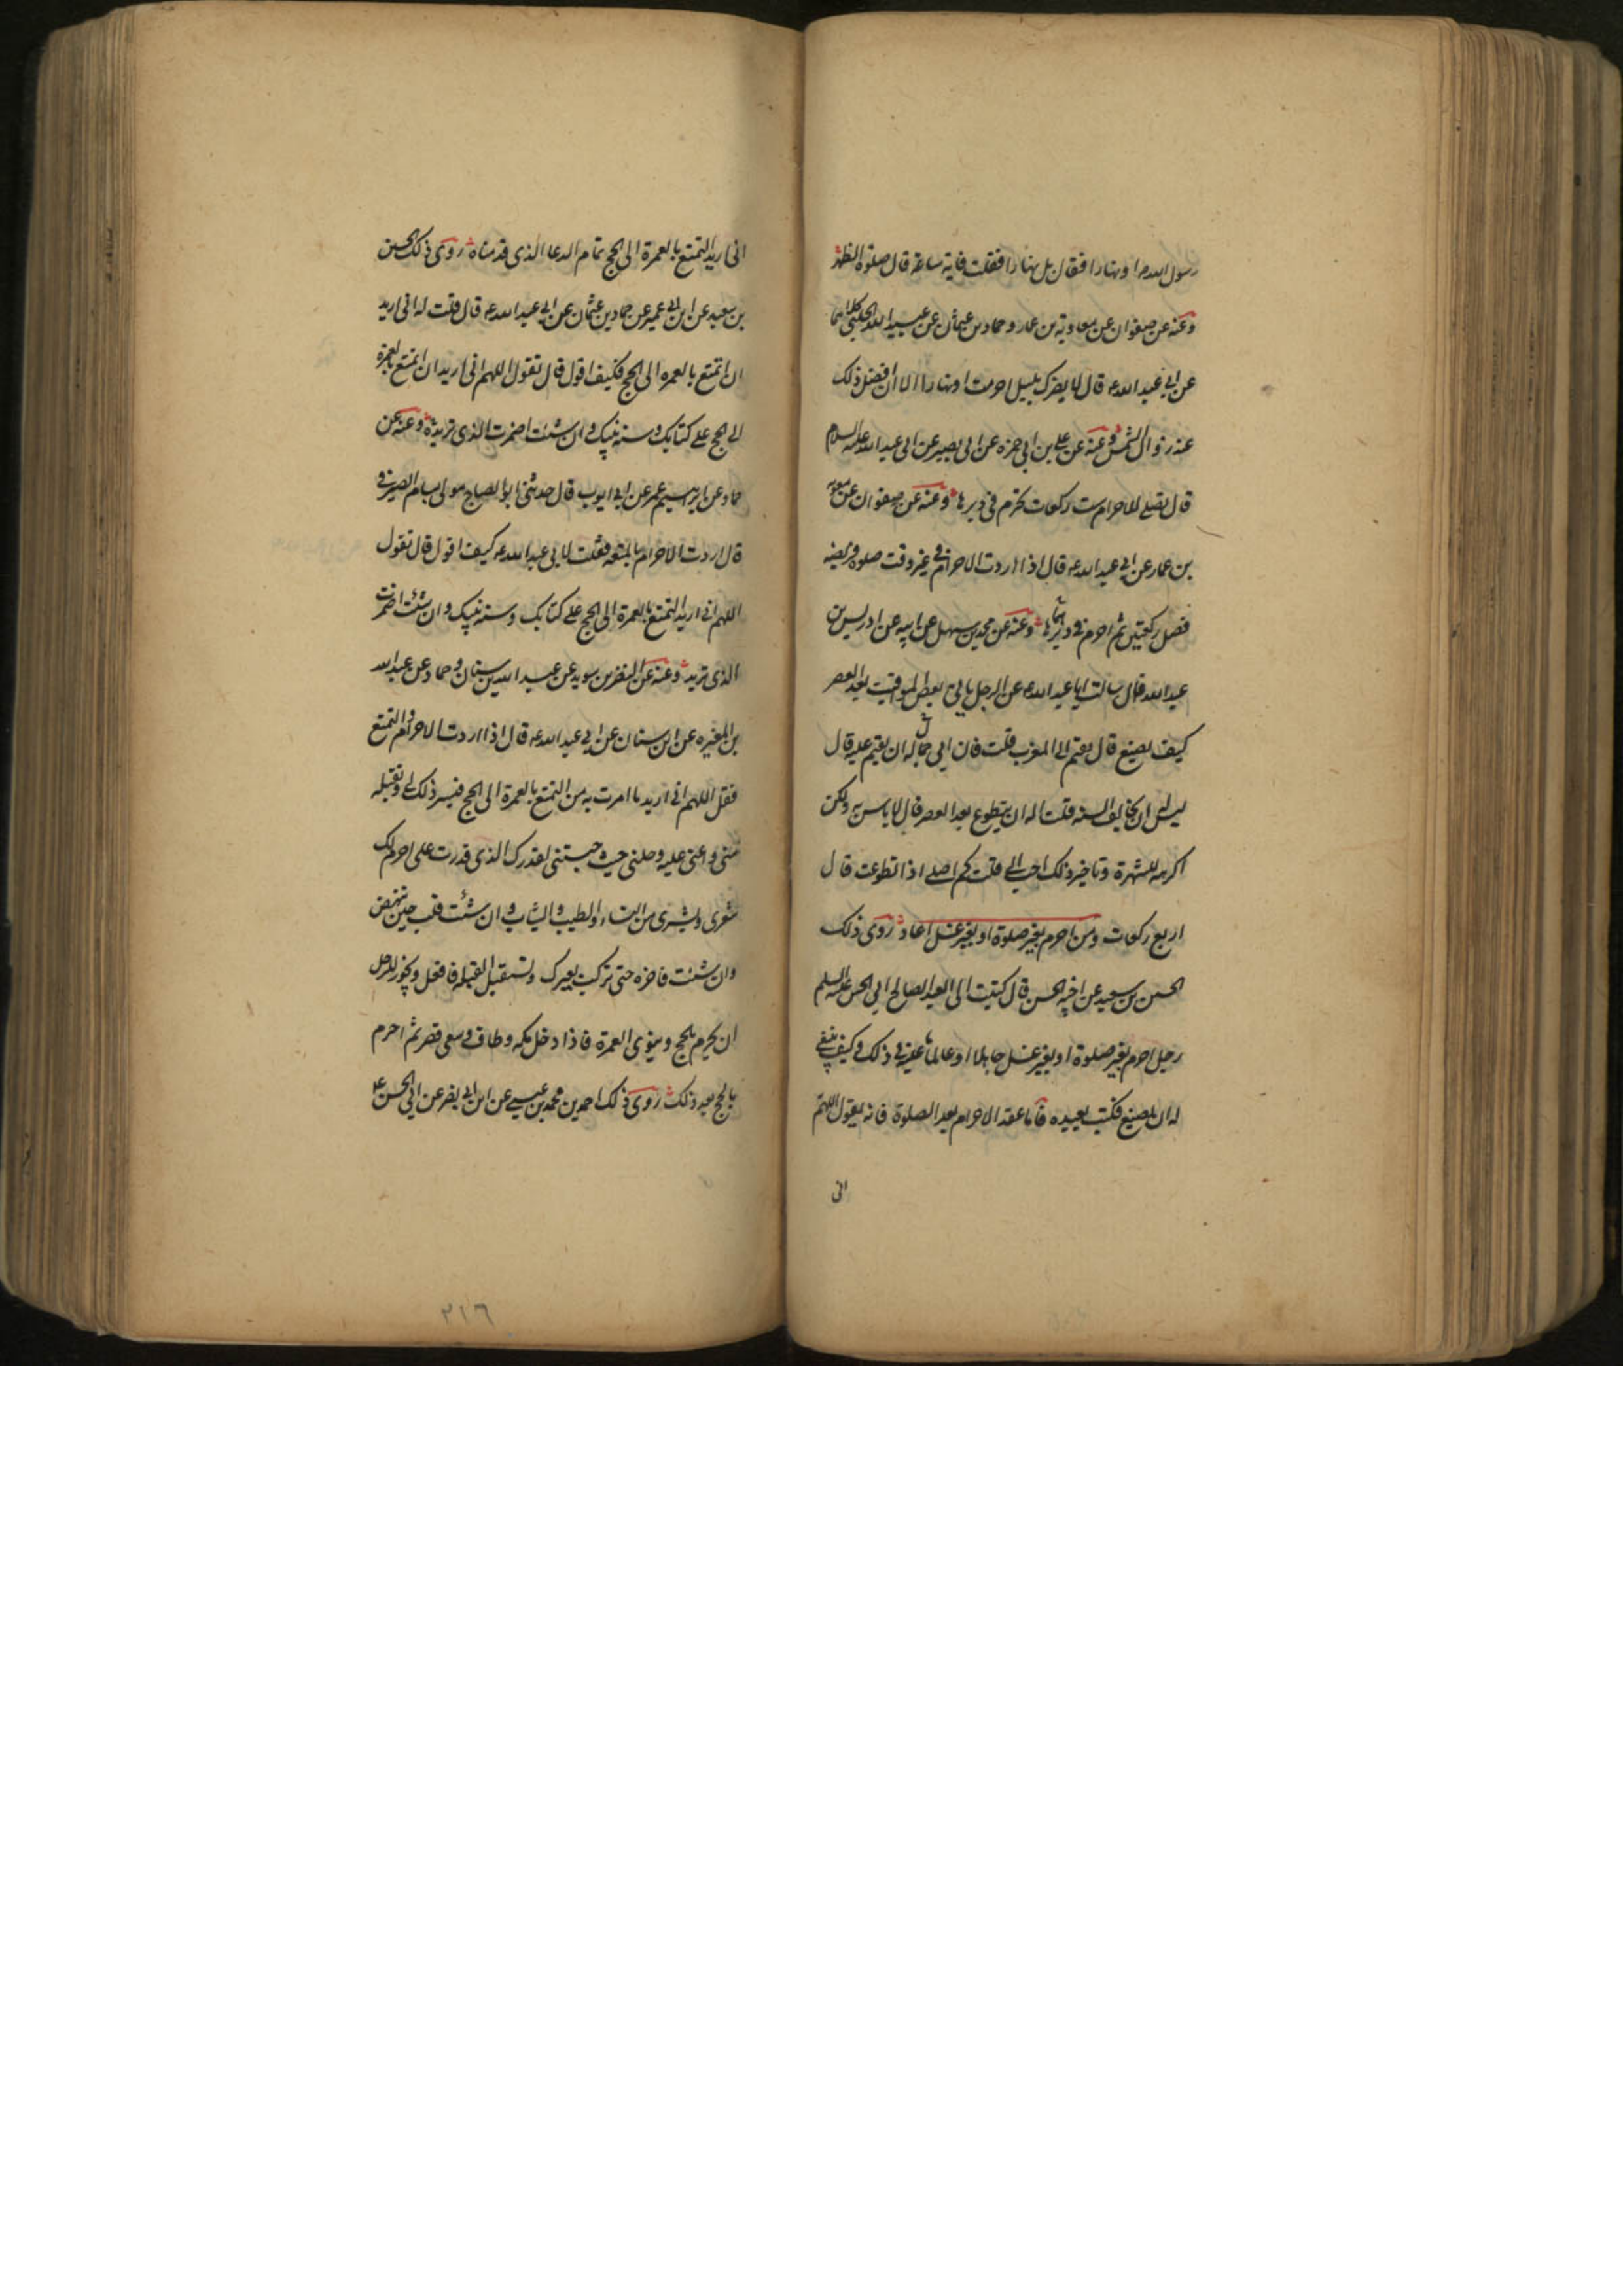 رسول الله ص او نهارا فقال بل نهارا فقلت فاية ساعة قال صلوة الظهر
وعنه عن صفوان عن معاوية بن عمار وحماد بن عيثمان عن عبيد الله الحلبي كلاهما
عن ابي عبد الله ع قال لا يضرك بليل احرمت او نهارا الا ان افضل ذلك
عند زوال الشمس وعنه عن علي بن ابي حمزه عن ابي بصير عن ابي عبد الله عليه السلام
قال تصلي للاحرام ست ركعات تحرم في دبرها وعنه عن صفوان عن معويه
بن عمار عن ابي عبد الله ع قال اذا اردت الاحرام في غير وقت صلوة فريضه
فصل ركعتين ثم احرم في دبرها وعنه عن محمد بن سهل عن ابيه عن ادريس بن
عبد الله قال سالت ابا عبد الله ع عن الرجل ياتي بعض المواقيت بعد العصر
كيف يصنع قال يقيم الى المغرب قلت فان ابى جماله ان يقيم عليه قال
ليس له ان يخالف السنه قلت اله ان يتطوع بعد العصر قال لا باس به ولكن
اكرهه للشهرة وتاخير ذلك احب الي قلت كم اصلي اذا تطوعت قال
اربع ركعات ومن احرم بغير صلوة او بغير غسل اعاد روى ذلك
الحسين بن سعيد عن اخيه الحسن قال كتبت الى العبد الصالح ابي الحسن عليه السلم
رجل احرم بغير صلوة او بغير غسل جاهلا او عالما ما عليه في ذلك وكيف ينبغي
له ان يصنع فكتب يعيده فاما عقد الاحرام بعد الصلوة فانه يقول اللهم
اني
اني اريد التمتع بالعمرة الى الحج تمام الدعا الذي قدمناه روى ذلك الحسين
بن سعيد عن ابن ابي عمير عن حماد بن عثمان عن ابي عبد الله ع قال قلت له اني اريد
ان اتمتع بالعمره الى الحج فكيف اقول قال تقول اللهم اني اريد ان اتمتع بالعمرة
الى الحج على كتابك وسنه نبيك وان شئت اضمرت الذي تريده وعنه عن
حماد عن ابرهيم بن عمر عن ابي ايوب قال حدثني ابو الصباح مولى بسام الصيرفي
قال اردت الاحرام بالمتعه فقلت لابي عبد الله ع كيف اقول قال تقول
اللهم اني اريد التمتع بالعمرة الى الحج على كتابك وسنه نبيك وان شئت اضمرت
الذي تريد وعنه عن النضر بن سويد عن عبد الله بن سنان وحماد عن عبد الله
بن المغيره عن ابن سنان عن ابي عبد الله ع قال اذا اردت الاحرام والتمتع
فقل اللهم اني اريد ما امرت به من التمتع بالعمرة الى الحج فيسر ذلك لي وتقبله
مني واعني عليه وحلني حيث حبستني لقدرك الذي قدرت علي احرم لك
شعري وبشري من النساء والطيب والثياب وان شئت فلب حين تنهض
وان شئت فاخره حتى تركب بعيرك وتستقبل القبله فافعل ويجوز للرجل
ان يحرم بالحج وينوي العمرة فاذا دخل مكه وطاف وسعى قصر ثم احرم
بالحج بعد ذلك روى ذلك احمد بن محمد بن عيسى عن ابن ابي نصر عن ابي الحسن ع
٢١٦